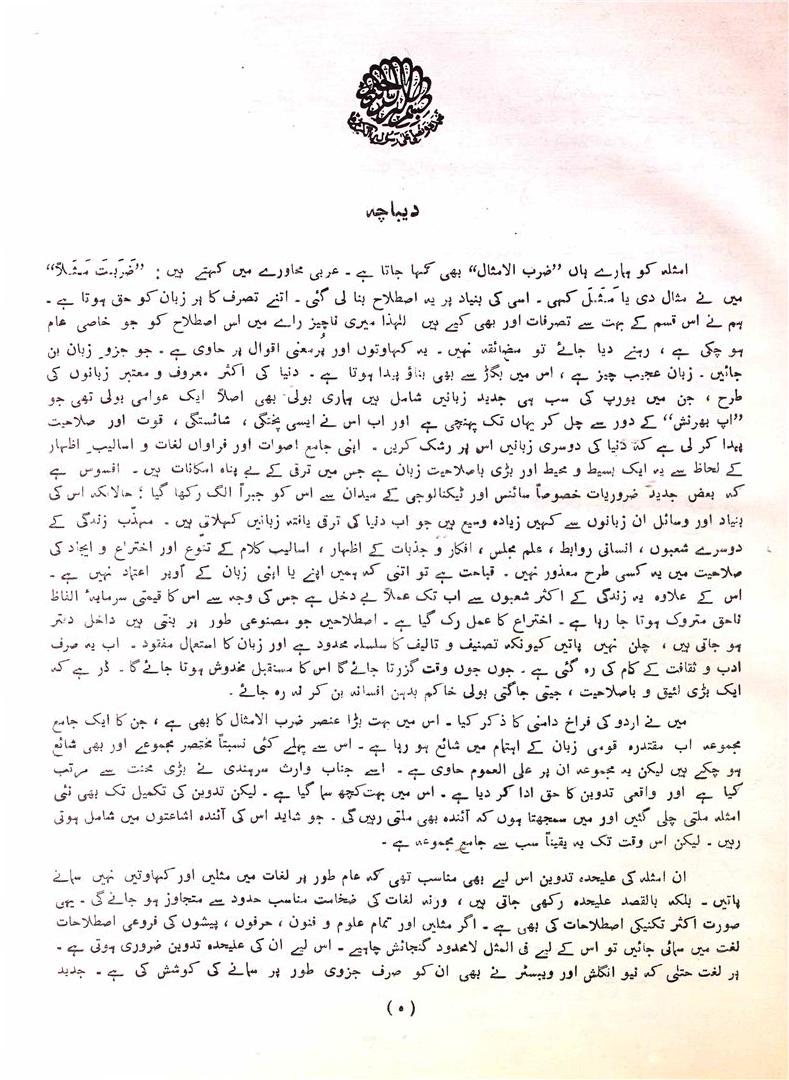 بسم اللہ الرحمن الرحیم
نحمدہ و نصلی علیٰ رسولہ الکریم
دیباچہ
امثلہ کو ہمارے ہاں ”ضرب الامثال“ بھی کہا جاتا ہے ۔ عربی محاورے میں کہتے ہیں : ”ضَرَبتُ مَثَلاً“
میں نے مثال دی یا مَثَل کہی ۔ اسی کی بنیاد پر یہ اصطلاح بنا لی گئی ۔ اتنے تصرف کا ہر زبان کو حق ہوتا ہے ۔
ہم نے اس قسم کے بہت سے تصرفات اور بھی کیے ہیں لہٰذا میری ناچیز راے میں اس اصطلاح کو جو خاصی عام
ہو چکی ہے ، رہنے دیا جائے تو مضائقہ نہیں ۔ یہ کہاوتوں اور پُرمعنی اقوال پر حاوی ہے ۔ جو جزو زبان بن
جائیں ۔ زبان عجیب چیز ہے ، اس میں بگڑ سے بھی بناؤ پیدا ہوتا ہے ۔ دنیا کی اکثر معروف و معتبر زبانوں کی
طرح ، جن میں یورپ کی سب ہی جدید زبانیں شامل ہیں ہماری بولی بھی اصلاً ایک عوامی بولی تھی جو
”اپ بھرنش“ کے دور سے چل کر یہاں تک پہنچی ہے اور اب اس نے ایسی پختگی ، شائستگی ، قوت اور صلاحیت
پیدا کر لی ہے کہ دنیا کی دوسری زبانیں اس پر رشک کریں ۔ اپنی جامع اصوات اور فراواں لغات و اسالیب اظہار
کے لحاظ سے یہ ایک بسیط و محیط اور بڑی باصلاحیت زبان ہے جس میں ترقی کے بے پناہ امکانات ہیں ۔ افسوس ہے
کہ بعض جدید ضروریات خصوصاً سائنس اور ٹیکنالوجی کے میدان سے اس کو جبراً الگ رکھا گیا ؛ حالانکہ اس کی
بنیاد اور وسائل ان زبانوں سے کہیں زیادہ وسیع ہیں جو اب دنیا کی ترقی یافتہ زبانیں کہلاتی ہیں ۔ مہذّب زندگی کے
دوسرے شعبوں ، انسانی روابط ، علم مجلس ، افکار و جذبات کے اظہار ، اسالیب کلام کے تنوّع اور اختراع و ایجاد کی
صلاحیت میں یہ کسی طرح معذور نہیں ۔ قباحت ہے تو اتنی کہ ہمیں اپنے یا اپنی زبان کے اُوپر اعتماد نہیں ہے ۔
اس کے علاوہ یہ زندگی کے اکثر شعبوں سے اب تک عملاً بے دخل ہے جس کی وجہ سے اس کا قیمتی سرمایۂ الفاظ
ناحق متروک ہوتا جا رہا ہے ۔ اختراع کا عمل رک گیا ہے ۔ اصطلاحیں جو مصنوعی طور پر بنتی ہیں داخل دفتر
ہو جاتی ہیں ، چلن نہیں پاتیں کیونکہ تصنیف و تالیف کا سلسلہ محدود ہے اور زبان کا استعمال مفقود ۔ اب یہ صرف
ادب و ثقافت کے کام کی رہ گئی ہے ۔ جوں جوں وقت گزرتا جائے گا اس کا مستقبل مخدوش ہوتا جائے گا ۔ ڈر ہے کہ
ایک بڑی لئیق و باصلاحیت ، جیتی جاگتی بولی خاکم بدہن افسانہ بن کر نہ رہ جائے ۔
میں نے اردو کی فراخ دامنی کا ذکر کیا ۔ اس میں بہت بڑا عنصر ضرب الامثال کا بھی ہے ، جن کا ایک جامع
مجموعہ اب مقتدرہ قومی زبان کے اہتمام میں شائع ہو رہا ہے ۔ اس سے پہلے کئی نسبتاً مختصر مجموعے اور بھی شائع
ہو چکے ہیں لیکن یہ مجموعہ ان پر علی العموم حاوی ہے ۔ اسے جناب وارث سرہندی نے بڑی محنت سے مرتب
کیا ہے اور واقعی تدوین کا حق ادا کر دیا ہے ۔ اس میں بہت کچھ سما گیا ہے ۔ لیکن تدوین کی تکمیل تک بھی نئی
امثلہ ملتی چلی گئیں اور میں سمجھتا ہوں کہ آئندہ بھی ملتی رہیں گی ۔ جو شاید اس کی آئندہ اشاعتوں میں شامل ہوتی
رہیں ۔ لیکن اس وقت تک یہ یقیناً سب سے جامع مجموعہ ہے ۔
ان امثلہ کی علیحدہ تدوین اس لیے بھی مناسب تھی کہ عام طور پر لغات میں مثلیں اور کہاوتیں نہیں سمانے
پاتیں ۔ بلکہ بالقصد علیحدہ رکھی جاتی ہیں ، ورنہ لغات کی ضخامت مناسب حدود سے متجاوز ہو جائے گی ۔ یہی
صورت اکثر تکنیکی اصطلاحات کی بھی ہے ۔ اگر مثلیں اور تمام علوم و فنون ، حرفوں ، پیشوں کی فروعی اصطلاحات
لغت میں سمائی جائیں تو اس کے لیے فی المثل لامحدود گنجائش چاہیے ۔ اس لیے ان کی علیحدہ تدوین ضروری ہوتی ہے ۔
ہر لغت حتلی کہ نیو انگلش اور ویبسٹر نے بھی ان کو صرف جزوی طور پر سمانے کی کوشش کی ہے ۔ جدید
( ۵ )